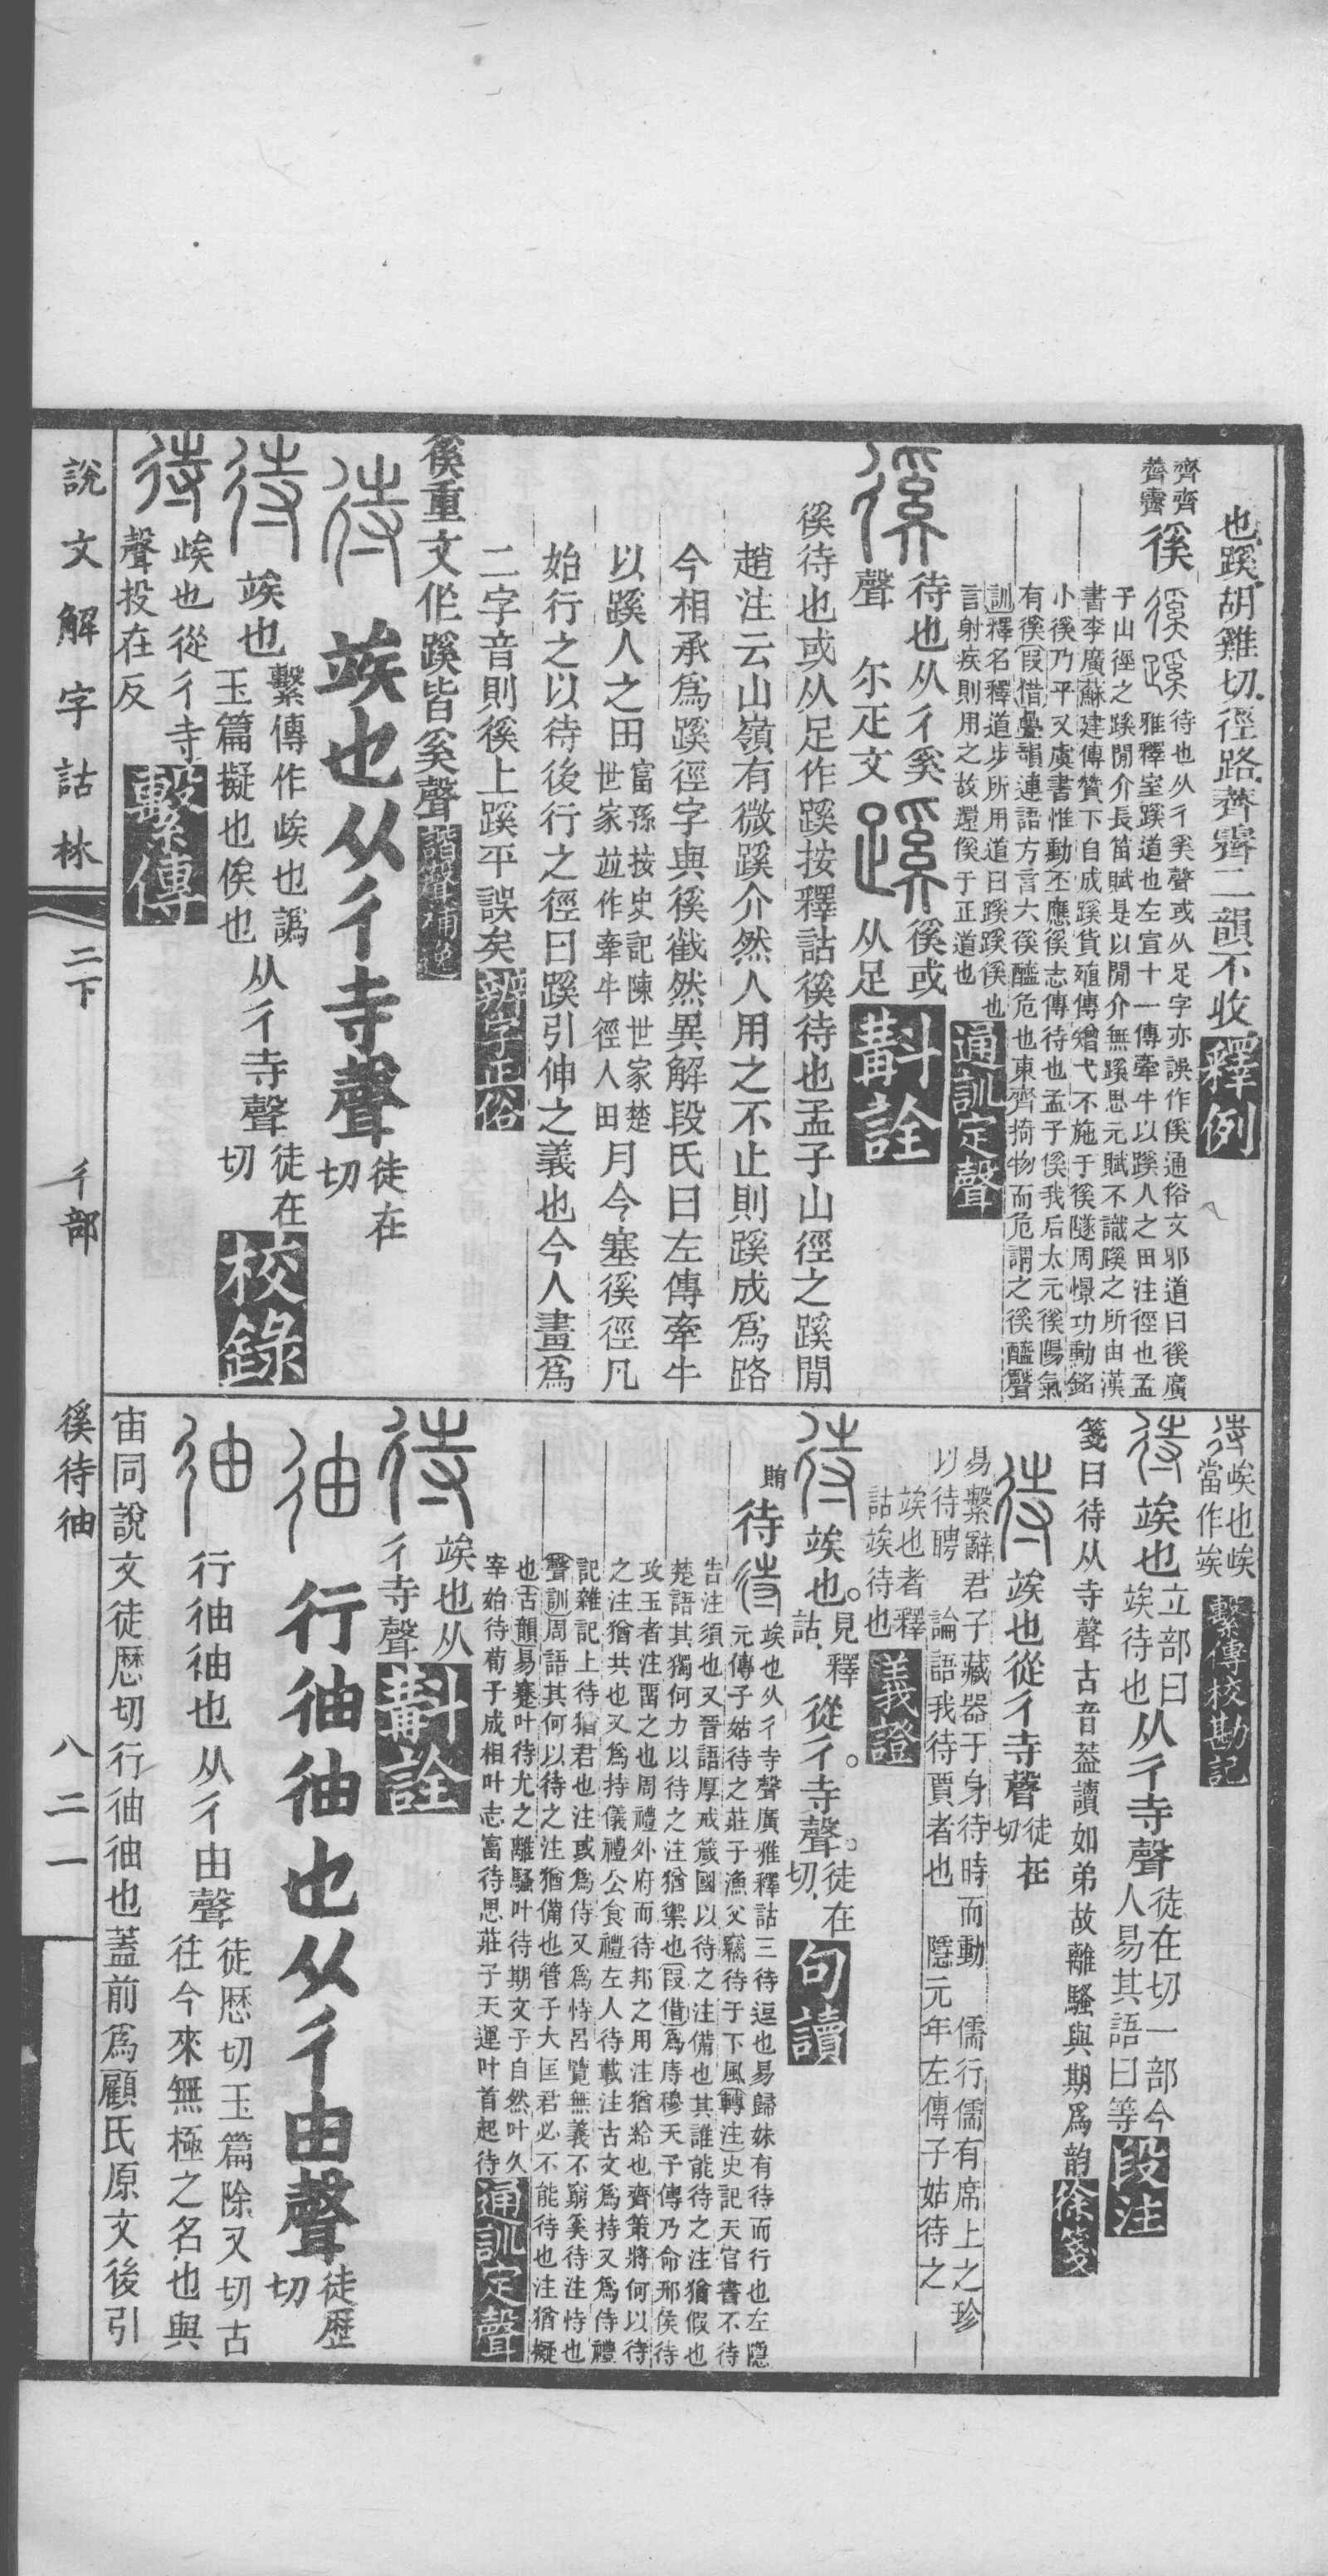 也蹊胡雞切徑路薺霽二韻不收釋例
齊齊薺霽徯
徯蹊待也从彳奚聲或从足字亦誤作傒通俗文邪道曰徯廣
雅釋室蹊道也左宣十一傳牽牛以蹊人之田注徑也孟
子山徑之蹊閒介長笛賦是以閒介無蹊思元賦不識蹊之所由漢
書李廣蘇建傳贊下自成蹊貨殖傳矰弋不施于徯隧周憬功勳銘
小徯乃平又虞書惟動丕應徯志傳待也孟子傒我后太元徯陽氣
有徯叚借疊韻連語方言六徯醯危也東齊掎物而危謂之徯醯聲
訓釋名釋道步所用道曰蹊蹊傒也
言射疾則用之故還傒于正道也通訓定聲
徯待也从彳奚
聲尒疋文蹊徯或
从足斠詮
徯待也或从足作蹊按釋詁徯待也孟子山徑之蹊閒
趙注云山嶺有微蹊介然人用之不止則蹊成爲路
今相承爲蹊徑字與徯截然異解段氏曰左傳牽牛
以蹊人之田富孫按史記陳世家楚
世家竝作牽牛徑人田月令塞徯徑凡
始行之以待後行之徑曰蹊引伸之義也今人畫爲
二字音則徯上蹊平誤矣辨字正俗
徯重文作蹊皆奚聲諧聲補逸
待竢也从彳寺聲徒在
切
待竢也繫傳作㱯也譌
玉篇擬也俟也从彳寺聲徒在
切校錄
待㱯也從彳寺
聲投在反繫傳
待㱯也㱯
當作竢繫傳校勘記
待竢也立部曰
竢待也从彳寺聲徒在切一部今
人易其語曰等段注
箋曰待从寺聲古音葢讀如弟故離騷與期爲韵徐箋
待竢也從彳寺聲徒在
切
易繫辭君子藏器于身待時而動　儒行儒有席上之珍
以待聘　論語我待賈者也　隱元年左傳子姑待之
竢也者釋
詁竢待也義證
待竢也見釋
詁從彳寺聲徒在
切句讀
賄待
待竢也从彳寺聲廣雅釋詁三待逗也易歸妹有待而行也左隱
元傳子姑待之莊子漁父竊待于下風轉注史記天官書不待
告注須也又晉語厚戒箴國以待之注備也其誰能待之注猶假也
楚語其獨何力以待之注猶禦也叚借爲庤穆天子傳乃命邢侯待
攻玉者注畱之也周禮外府而待邦之用注猶給也齊策將何以待
之注猶共也又爲持儀禮公食禮左人待載注古文爲持又爲侍禮
記雜記上待猶君也注或爲侍又爲恃呂覽無義不窮奚待注恃也
聲訓周語其何以待之注猶備也管子大匡君必不能待也注猶擬
也古韻易蹇叶待尤之離騷叶待期文子自然叶久
宰始待荀子成相叶志富待思莊子天運叶首起待通訓定聲
待竢也从
彳寺聲斠詮
㣙行㣙㣙也从彳由聲徒歷
切
㣙行㣙㣙也从彳由聲徒厯切玉篇除又切古
往今來無極之名也與
宙同說文徒厯切行㣙㣙也蓋前爲顧氏原文後引
說文解字詁林
二下
彳部
徯待㣙
八二一